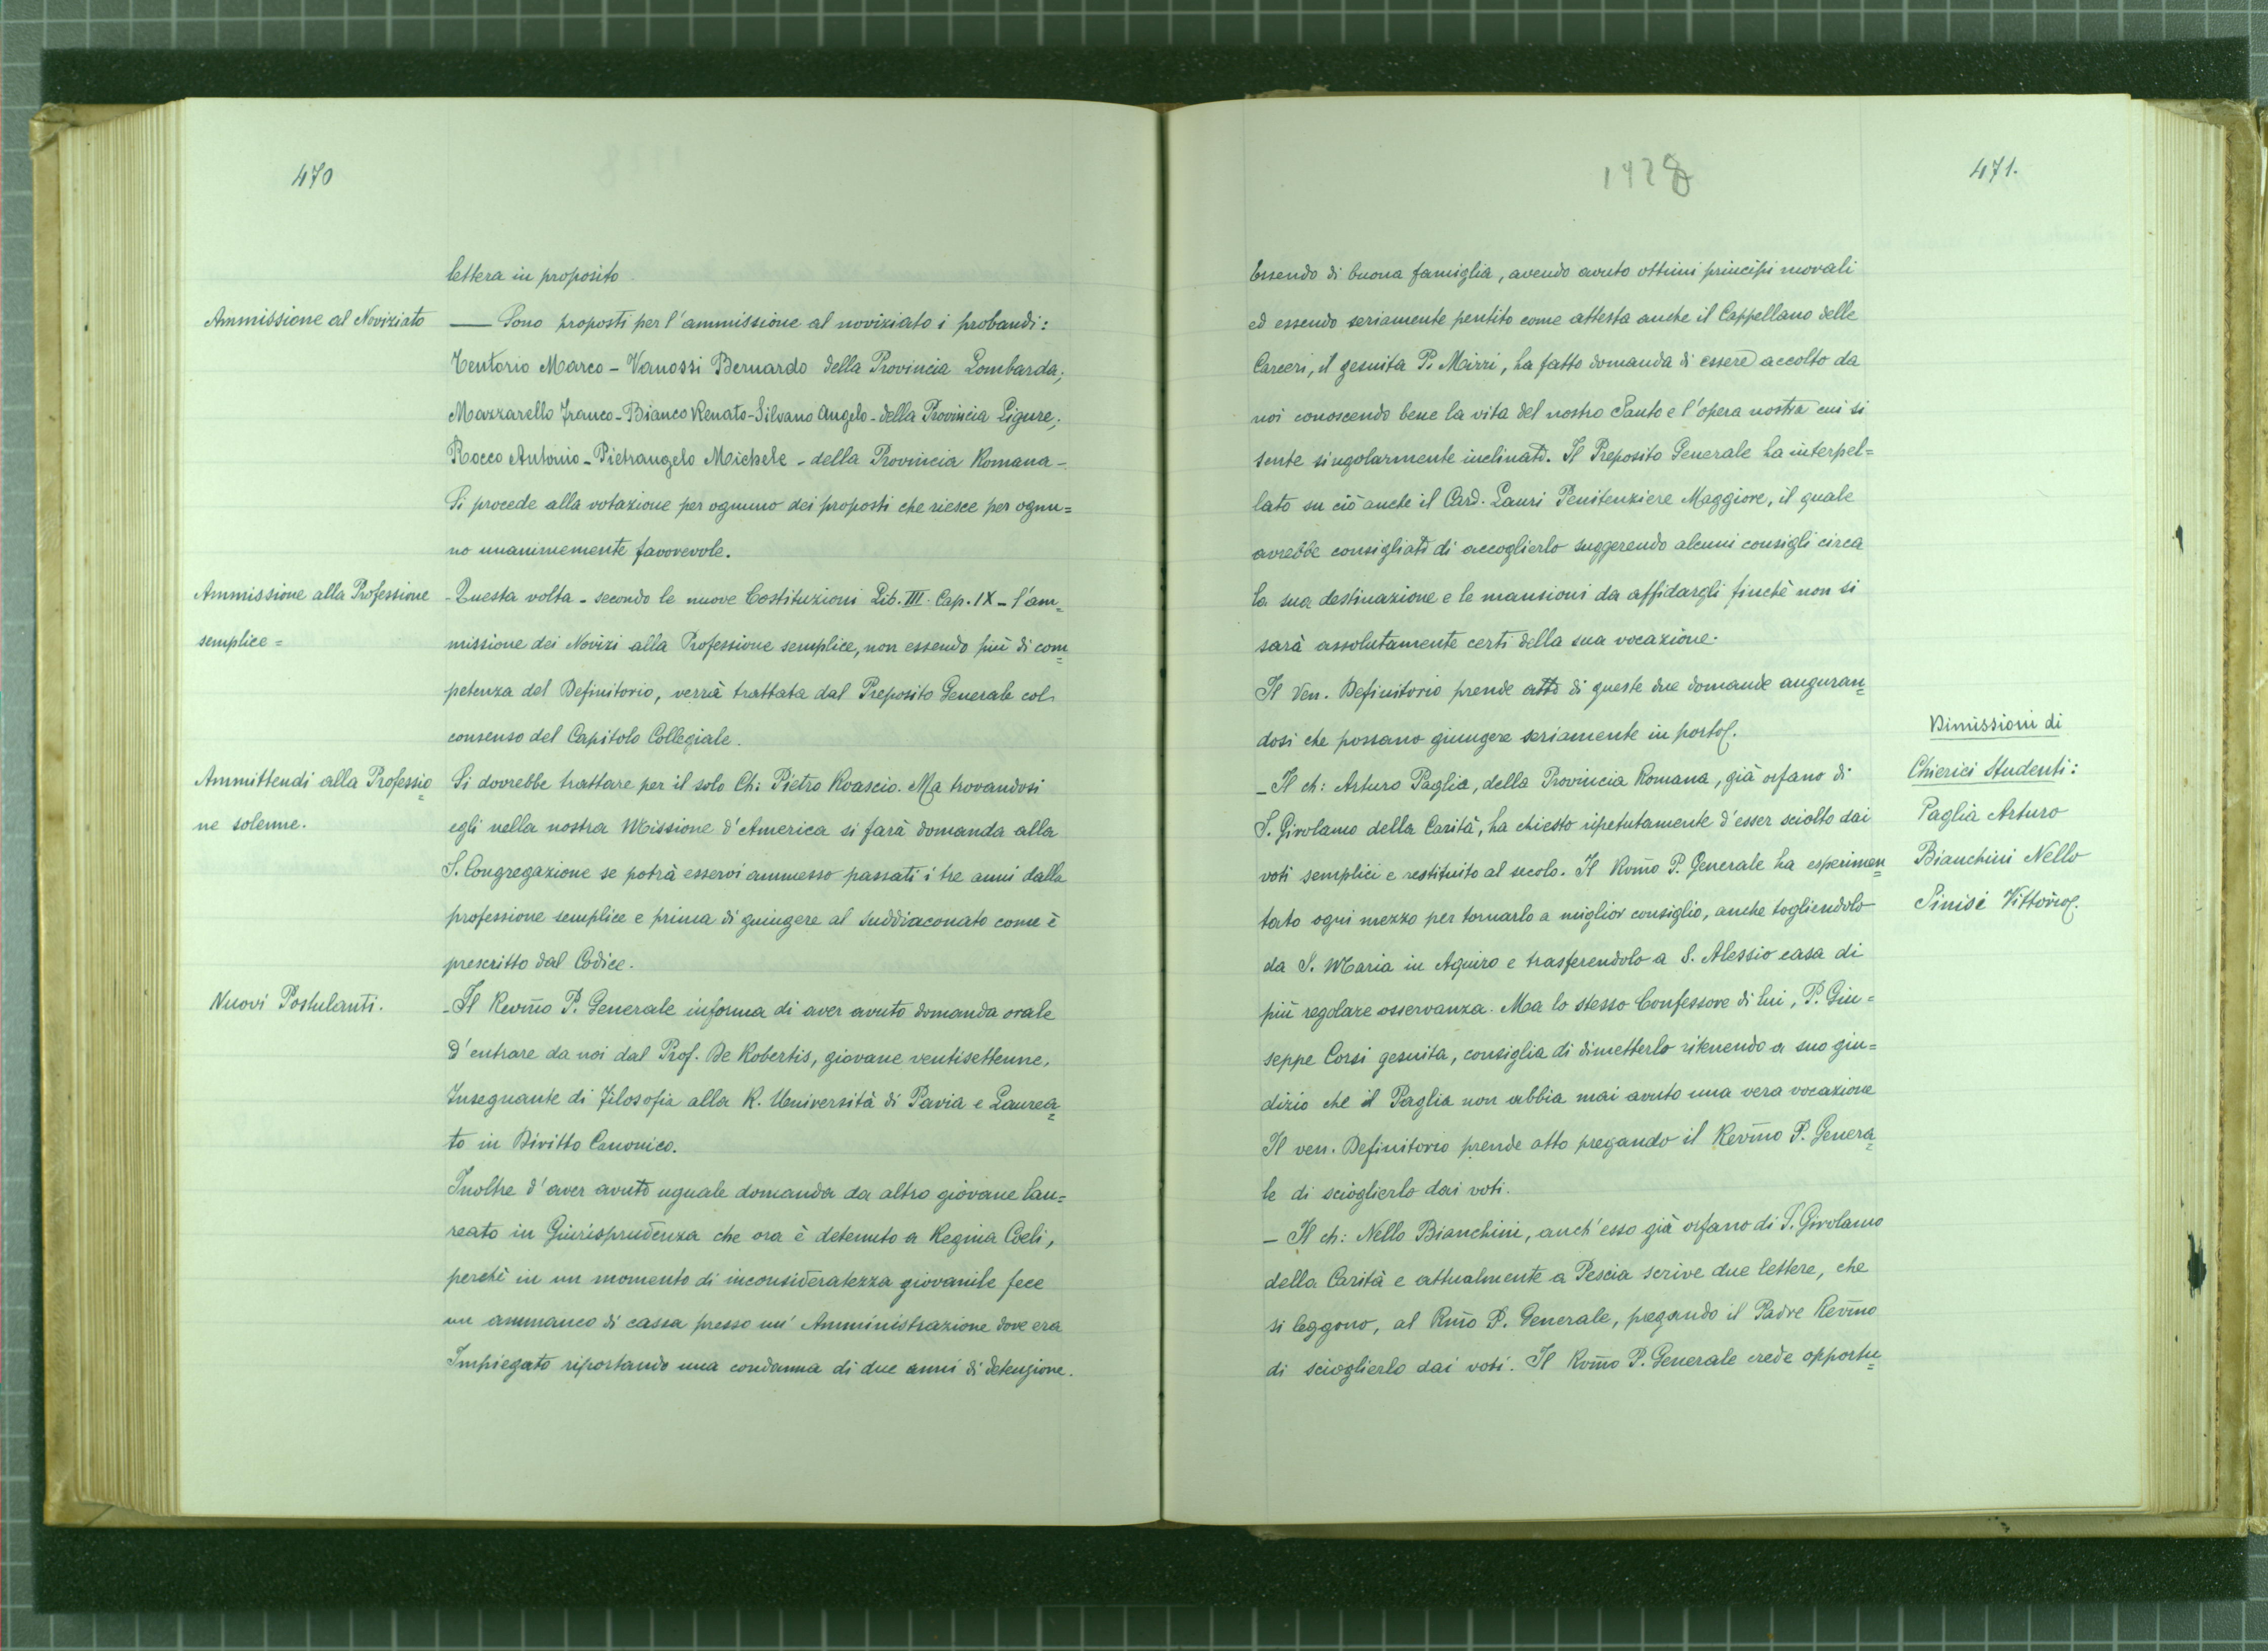 470
lettera in proposito.
Ammissione al Noviziato
— Sono proposti per l'ammissione al noviziato i probandi:
Tentorio Marco - Vanossi Bernardo della Provincia Lombarda;
Mazzarello Franco - Bianco Renato - Silvano Angelo - della Provincia Ligure;
Rocco Antonio - Pietrangelo Michele - della Provincia Romana -
Si procede alla votazione per ognuno dei proposti che riesce per ognu=
no unanimemente favorevole.
Ammissione alla Professione
semplice =
- Questa volta - secondo le nuove Costituzioni Lib. III Cap. IX - l'am=
missione dei Novizi alla Professione semplice, non essendo più di com=
petenza del Definitorio, verrà trattata dal Preposito Generale col
consenso del Capitolo Collegiale.
Ammittendi alla Professio=
ne solenne.
Si dovrebbe trattare per il solo Ch: Pietro Roascio. Ma trovandosi
egli nella nostra Missione d'America si farà domanda alla
S. Congregazione se potrà esservi ammesso passati i tre anni dalla
professione semplice e prima di giungere al Suddiaconato come è
prescritto dal Codice.
Nuovi Postulanti.
- Il Revm̃o P. Generale informa di aver avuto domanda orale
d'entrare da noi dal Prof. De Robertis, giovane ventisettenne,
Insegnante di Filosofia alla R. Università di Pavia e Laurea=
to in Diritto Canonico.
Inoltre d'aver avuto uguale domanda da altro giovane lau=
reato in Giurisprudenza che ora è detenuto a Regina Coeli,
perchè in un momento di inconsideratezza giovanile fece
un ammanco di cassa presso un' Amministrazione dove era
Impiegato riportando una condanna di due anni di detenzione.
1928
471.
Essendo di buona famiglia, avendo avuto ottimi principi morali
ed essendo seriamente pentito come attesta anche il Cappellano delle
Carceri, il gesuita P. Mirri, ha fatto domanda di essere accolto da
noi conoscendo bene la vita del nostro Santo e l'opera nostra cui si
sente singolarmente inclinato. Il Preposito Generale ha interpel=
lato su ciò anche il Card. Lauri Penitenziere Maggiore, il quale
avrebbe consigliato di accoglierlo suggerendo alcuni consigli circa
la sua destinazione e le mansioni da affidargli finchè non si
sarà assolutamente certi della sua vocazione.
Il Ven. Definitorio prende atto di queste due domande auguran=
dosi che possano giungere seriamente in porto.
Dimissioni di
Chierici Studenti:
Paglia Arturo
Bianchini Nello
Sinisi Vittorio.
- Il ch: Arturo Paglia, della Provincia Romana, già orfano di
S. Girolamo della Carità, ha chiesto ripetutamente d'esser sciolto dai
voti semplici e restituito al secolo. Il Rvm̃o P. Generale ha esperimen=
tato ogni mezzo per tornarlo a miglior consiglio, anche togliendolo
da S. Maria in Aquiro e trasferendolo a S. Alessio casa di
più regolare osservanza. Ma lo stesso Confessore di lui, P. Giu=
seppe Corsi gesuita, consiglia di dimetterlo ritenendo a suo giu=
dizio che il Paglia non abbia mai avuto una vera vocazione
Il ven. Definitorio prende atto pregando il Revm̃o P. Genera=
le di scioglierlo dai voti.
- Il ch: Nello Bianchini, anch'esso già orfano di S. Girolamo
della Carità e attualmente a Pescia scrive due lettere, che
si leggono, al Rm̃o P. Generale, pregando il Padre Revm̃o
di scioglierlo dai voti. Il Rvm̃o P. Generale crede opportu=